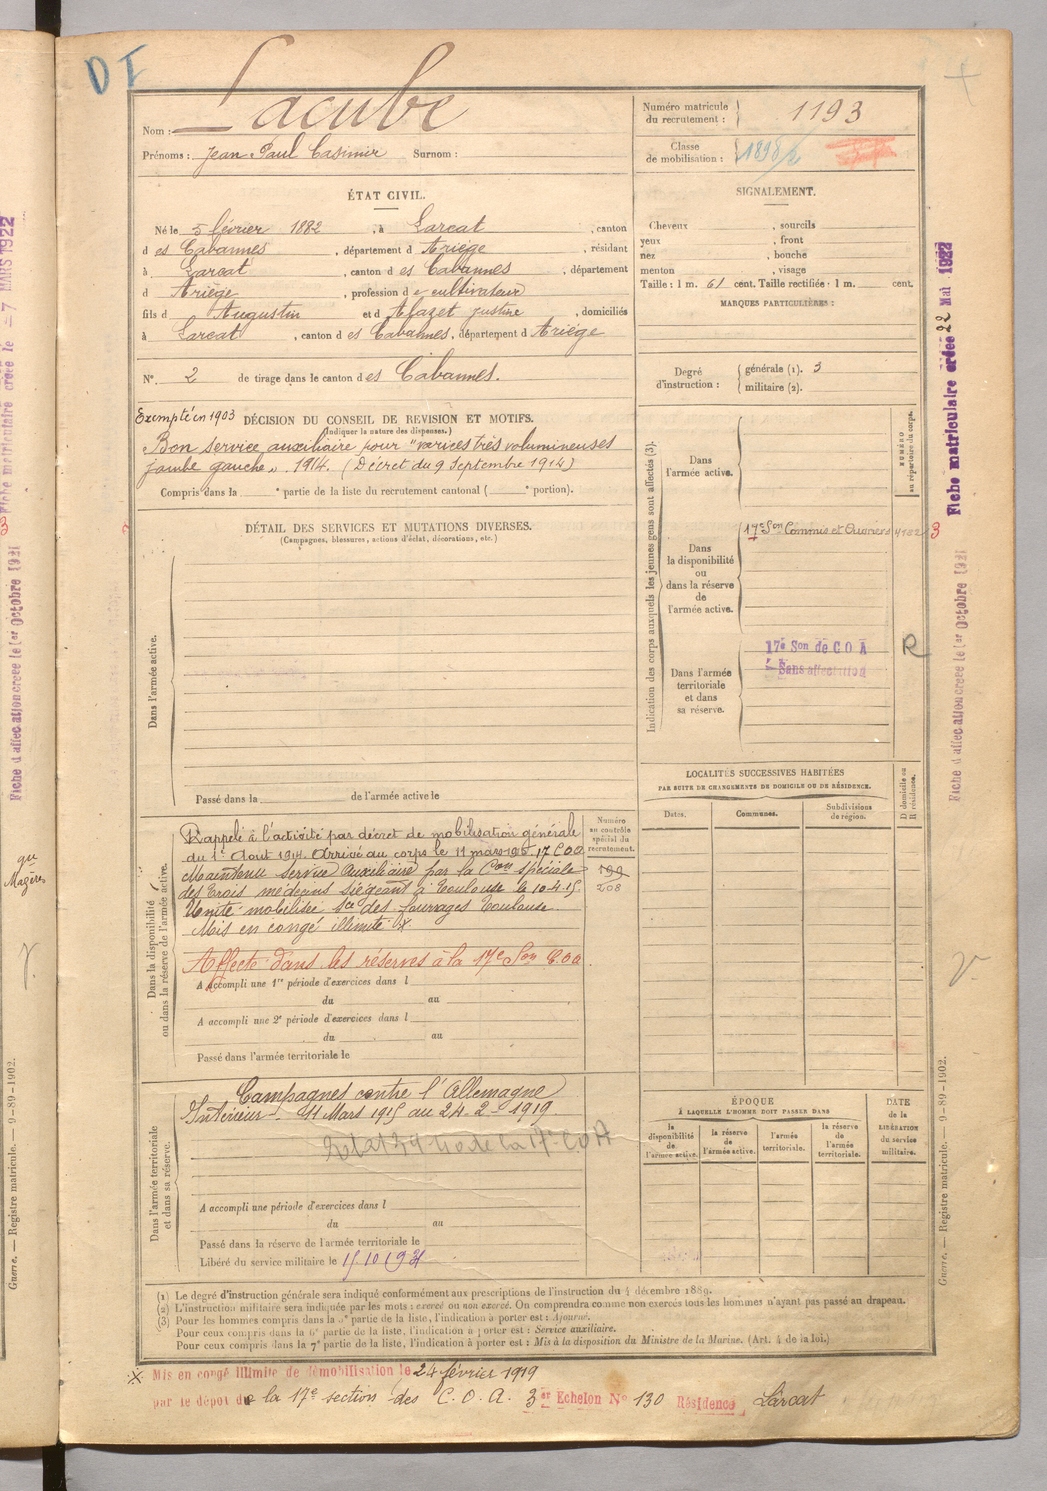 DI
Nom : Lacube
Prénoms : Jean Paul Casimir Surnom :
Numéro matricule du recrutement : 1193
Classe de mobilisation : 1898/2
ÉTAT CIVIL.
Né le 5 février 1882, à Larcat, canton
d es Cabannes, département d Ariège, résidant
à Larcat, canton d es Cabannes, département
d Ariège, profession d e cultivateur
fils d Augustin et d Alazet Justine, domiciliés
à Larcat, canton d es Cabannes, département d Ariège
N° 2 de tirage dans le canton d es Cabannes.
SIGNALEMENT.
Cheveux , sourcils
yeux , front
nez , bouche
menton , visage
Taille : 1 m. 61 cent. Taille rectifiée : 1 m. cent.
MARQUES PARTICULIÈRES :
Degré d'instruction : générale (1). 3
militaire (2).
Exempté en 1903 DÉCISION DU CONSEIL DE REVISION ET MOTIFS.
(Indiquer la nature des dispenses.)
Bon service auxiliaire pour "varices très volumineuses
jambe gauche". 1914. (Décret du 9 Septembre 1914)
Compris dans la e partie de la liste du recrutement cantonal ( e portion).
DÉTAIL DES SERVICES ET MUTATIONS DIVERSES.
(Campagnes, blessures, actions d'éclat, décorations, etc.)
Dans l'armée active.
Passé dans la de l'armée active le
Indication des corps auxquels les jeunes gens sont affectés (3).
NUMÉRO au répertoire du corps.
Dans l'armée active.
Dans la disponibilité ou dans la réserve de l'armée active.
17e Son Commis et Ouvriers 4182 3
Dans l'armée territoriale et dans sa réserve.
17e Son de C O A R
Sans affectation
LOCALITÉS SUCCESSIVES HABITÉES
PAR SUITE DE CHANGEMENTS DE DOMICILE OU DE RÉSIDENCE.
D domicile ou R résidence.
Dates. Communes. Subdivisions de région.
Dans la disponibilité ou dans la réserve de l'armée active.
Numéro au contrôle spécial du recrutement.
199
208
Rappelé à l'activité par décret de mobilisation générale
du 1er Aout 1914. Arrivé au corps le 11 mars 1915 17 COA
Maintenu service Auxiliaire par la Con spéciale
des Trois médecins siégeant à Toulouse le 10-4-15
Unité mobilisée Sce des fourrages Toulouse
Mis en congé illimité
Affecté dans les réserves à la 17e Son COA
A accompli une 1re période d'exercices dans l
du au
A accompli une 2e période d'exercices dans l
du au
Passé dans l'armée territoriale le
Dans l'armée territoriale et dans sa réserve.
Campagnes contre l'Allemagne
Intérieur 11 Mars 1915 au 24-2-1919
A accompli une période d'exercices dans l
du au
Passé dans la réserve de l'armée territoriale le
Libéré du service militaire le 15.10.1931
ÉPOQUE
À LAQUELLE L'HOMME DOIT PASSER DANS
la disponibilité de l'armée active.
la réserve de l'armée active.
l'armée territoriale.
la réserve de l'armée territoriale.
DATE de la LIBÉRATION du service militaire.
(1) Le degré d'instruction générale sera indiqué conformément aux prescriptions de l'instruction du 4 décembre 1889.
(2) L'instruction militaire sera indiquée par les mots : exercé ou non exercé. On comprendra comme non exercés tous les hommes n'ayant pas passé au drapeau.
(3) Pour les hommes compris dans la 2e partie de la liste, l'indication à porter est : Ajourné.
Pour ceux compris dans la 6e partie de la liste, l'indication à porter est : Service auxiliaire.
Pour ceux compris dans la 7e partie de la liste, l'indication à porter est : Mis à la disposition du Ministre de la Marine. (Art. 4 de la loi.)
Mis en congé illimité de démobilisation le 24 février 1919
par le dépôt de la 17e section des C.O.A. 3e Echelon N° 130 Résidence Larcat
Fiche matriculaire créée 22 Mai 1922
Fiche d'affectation créée le 1er Octobre 1921
Guerre. — Registre matricule. — 9-89-1902.
Fiche matriculaire créée le 7 MARS 1922
Fiche d'affectation créée le 1er Octobre 1921
Guerre. — Registre matricule. — 9-89-1902.